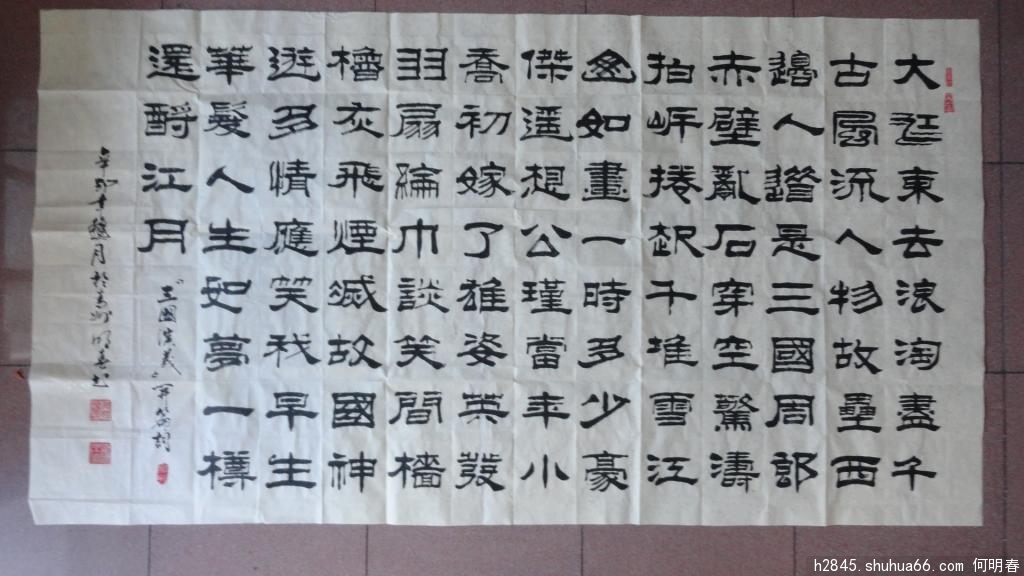 大江東去浪淘盡千
古風流人物故壘西
邊人道是三國周郎
赤壁亂石穿空驚濤
拍岸捲起千堆雪江
山如畫一時多少豪
傑遥想公瑾當年小
喬初嫁了雄姿英發
羽扇綸巾談笑間檣
櫓灰飛煙滅故國神
遊多情應笑我早生
華髮人生如夢一樽
還酹江月
三國演義
辛卯年臘月於明春書
h2845.shuhua66.com 何明春